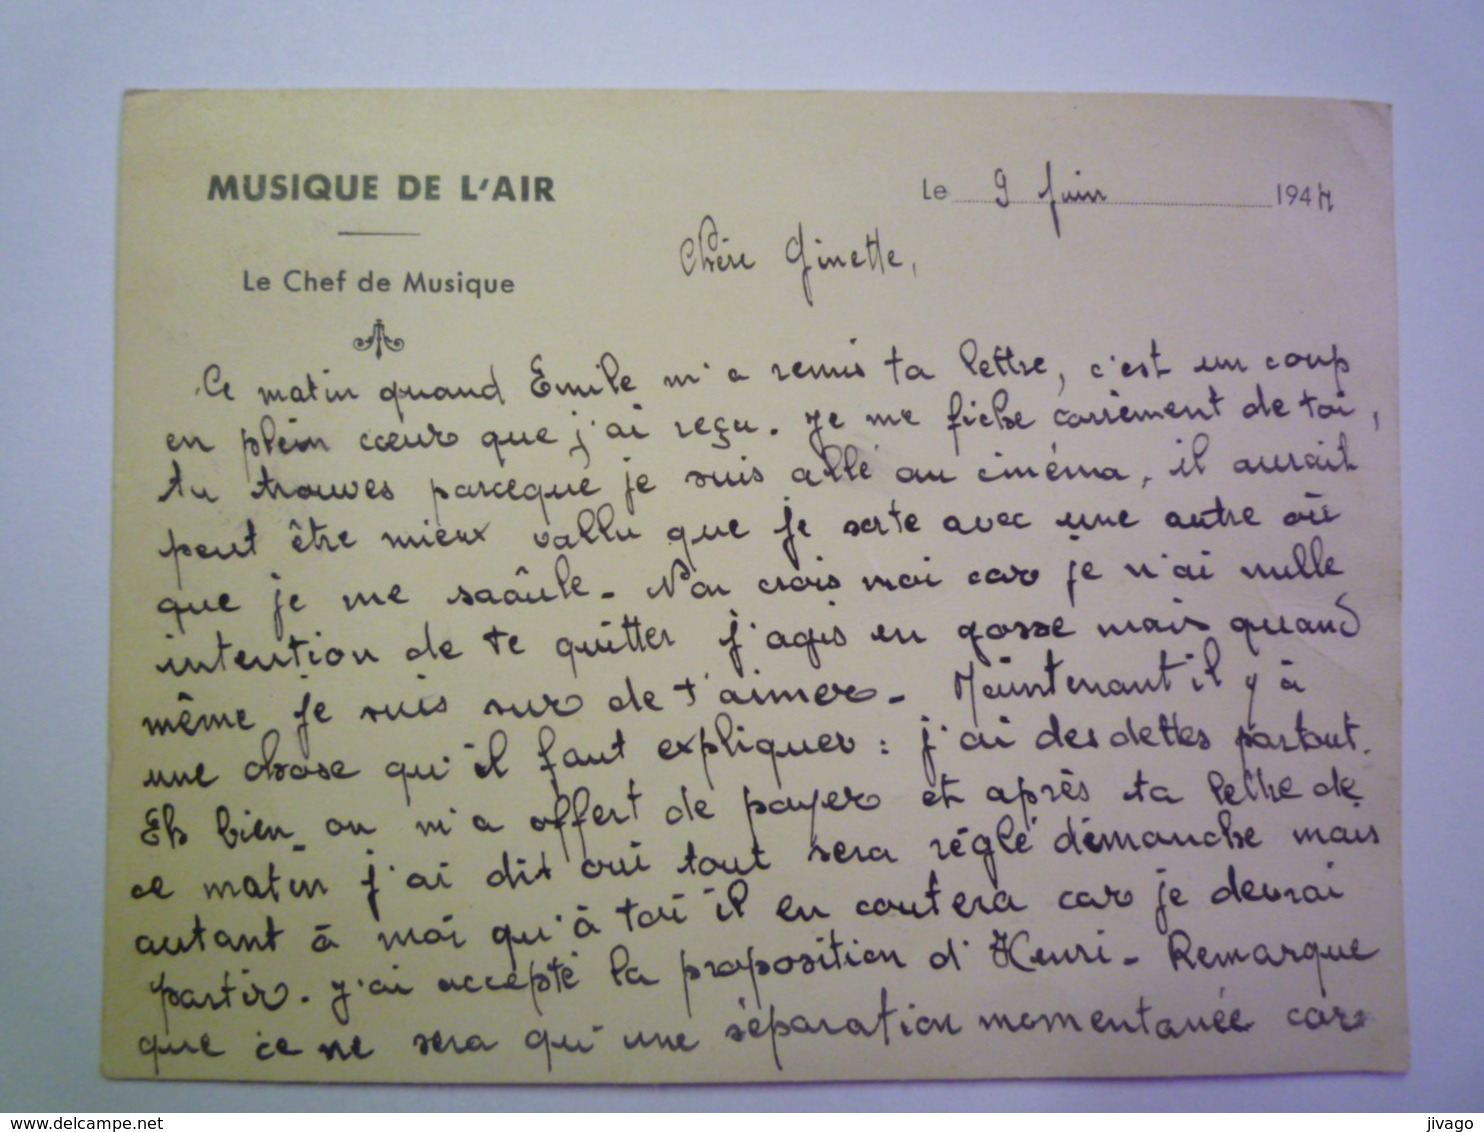 MUSIQUE DE L'AIR
Le 9 Juin 1947
Chère Ginette,
Le Chef de Musique
Ce matin quand Emile m'a remis ta lettre, c'est un coup
en plein cœur que j'ai reçu. Je me fiche carrément de toi,
tu trouves parceque je suis allé au cinéma, il aurait
peut être mieux vallu que je sorte avec une autre où
que je me saoûle. Non crois moi car je n'ai nulle
intention de te quitter j'agis en gosse mais quand
même je suis sur de t'aimer. Maintenant il y à
une chose qu'il faut expliquer : j'ai des dettes partout.
Eh bien on m'a offert de payer et après ta lettre de
ce matin j'ai dit oui tout sera réglé démanche mais
autant à moi qu'à toi il en coutera car je devrai
partir. J'ai accepté la proposition d'Henri. Remarque
que ce ne sera qu'une séparation momentanée car
www.delcampe.net
jivago